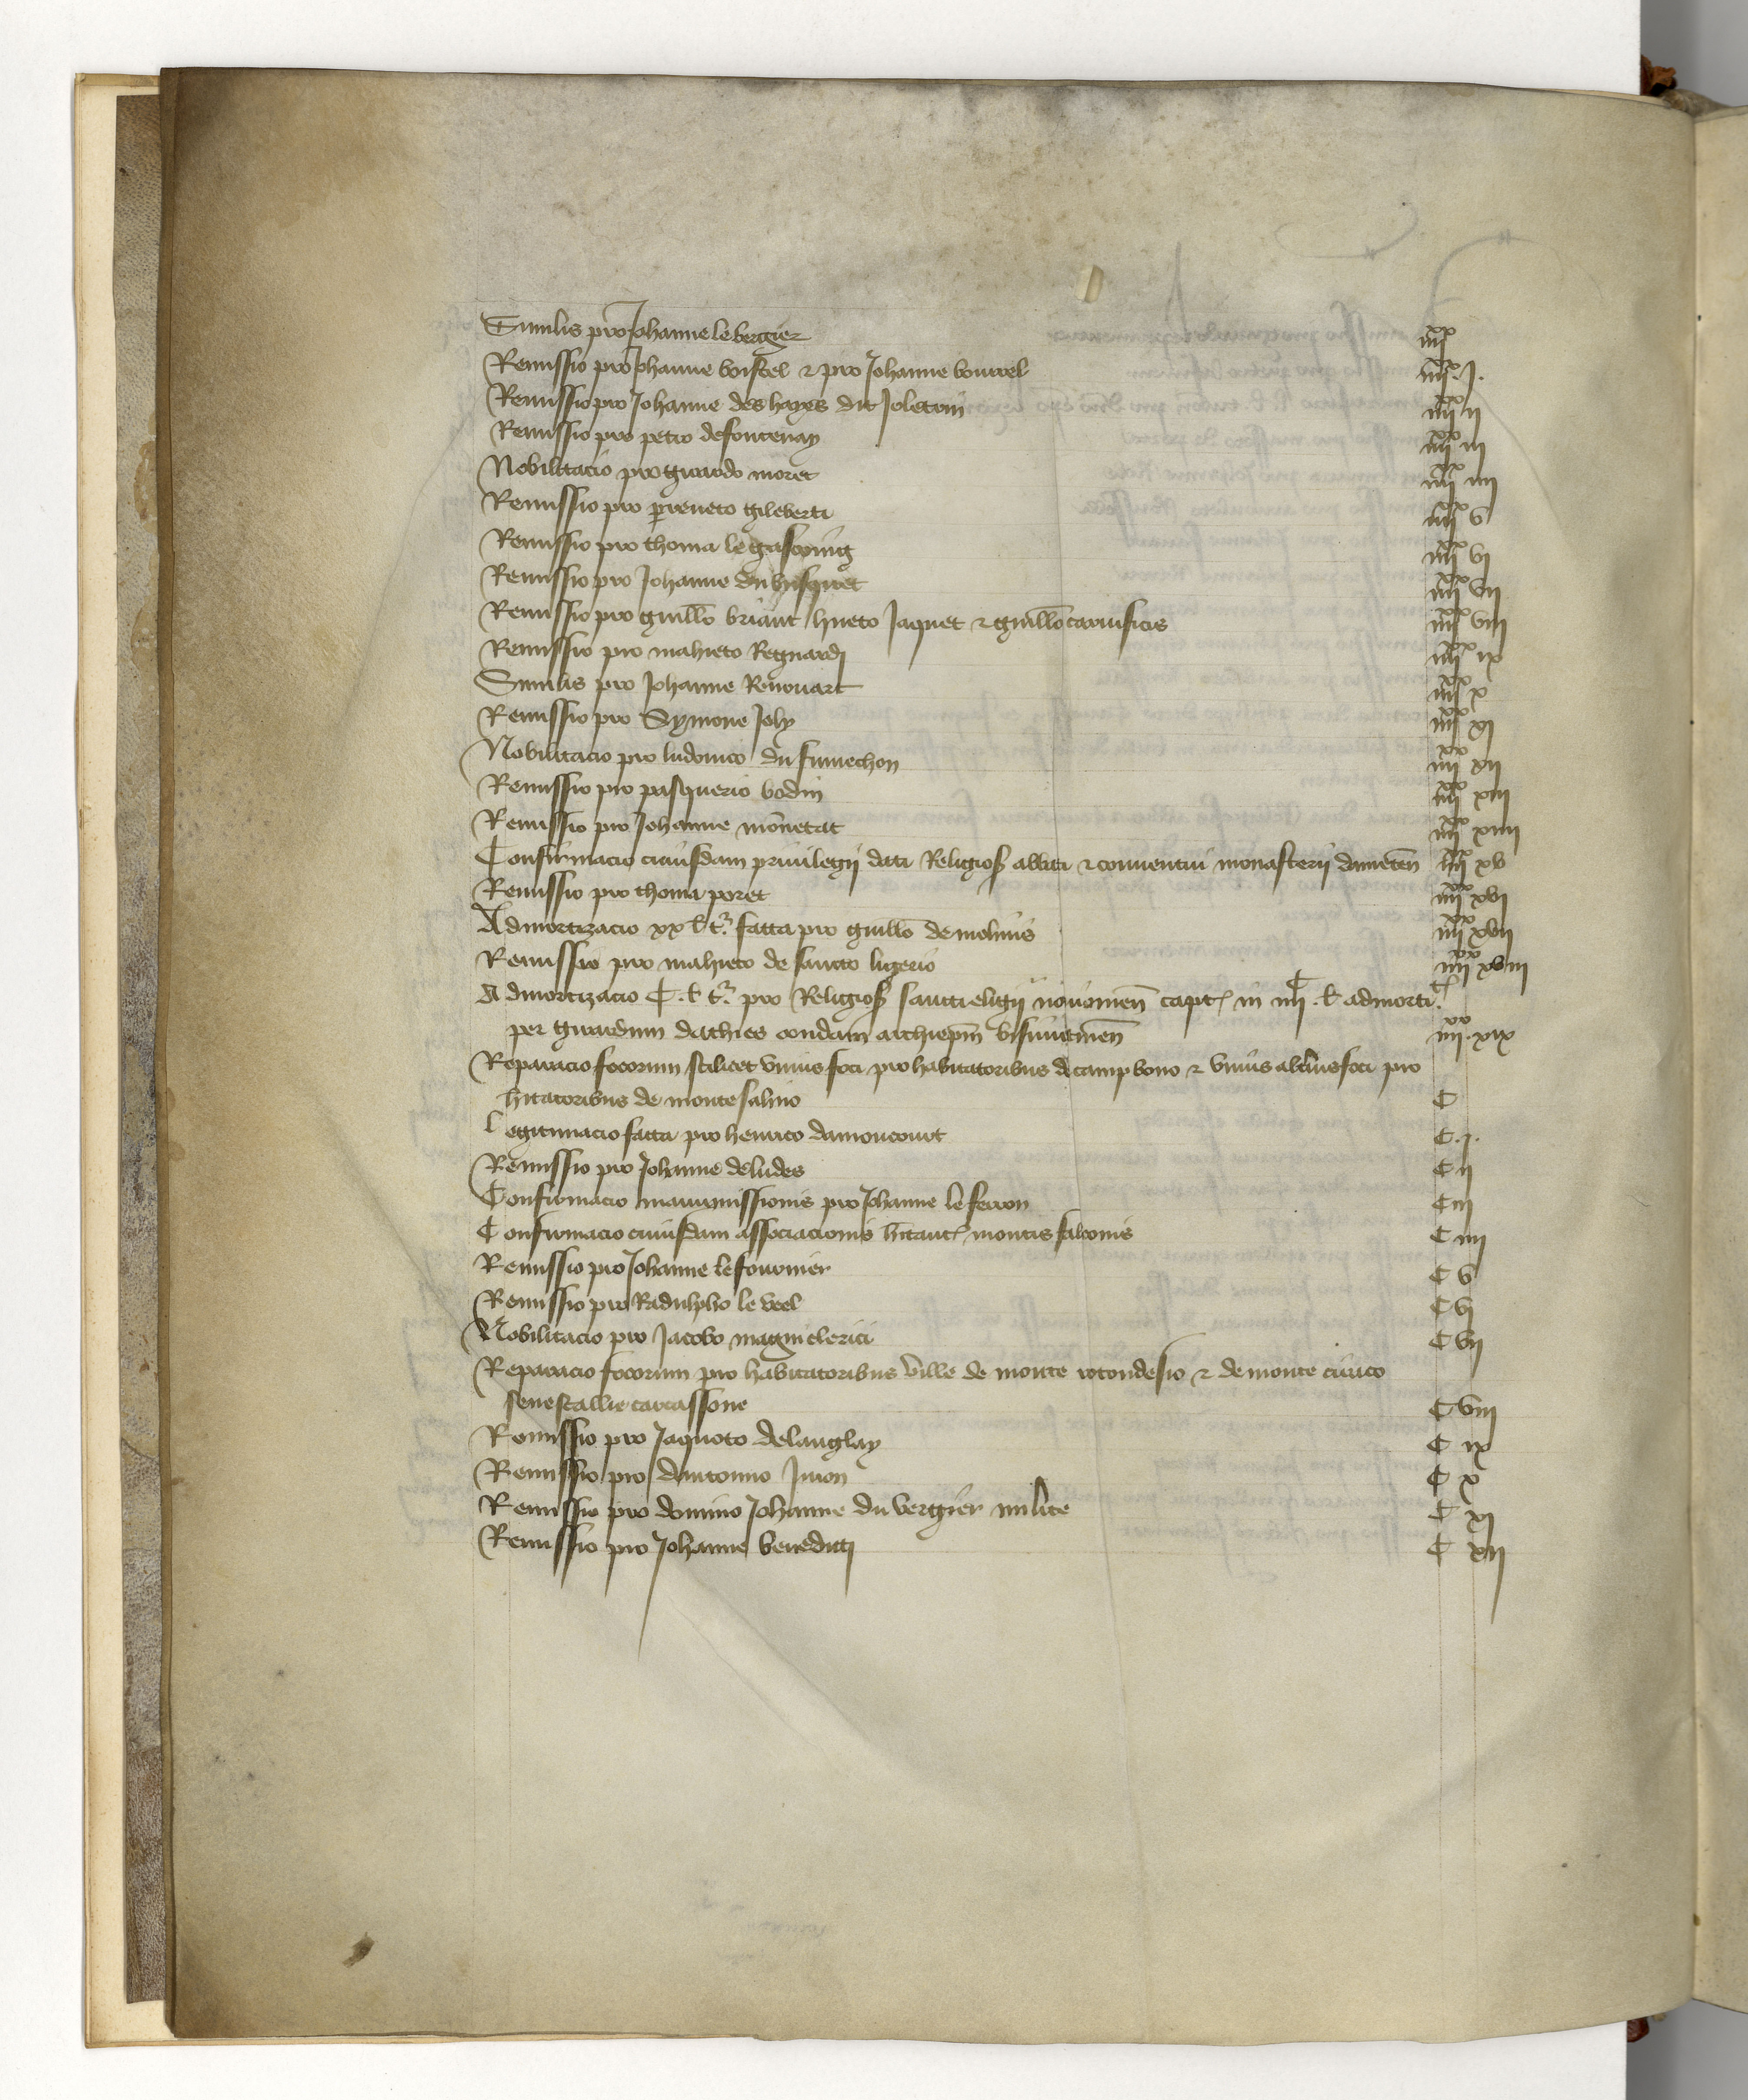 Similis pro Johanne le bergier iiii xx
Remissio pro Johanne boistel & pro Johanne bourrel iiii xx .j.
Remissio pro Johanne des hayes dit Joletrin iiii xx ii
Remissio pro petro de fontenay iiii xx iii
Nobilitacio pro girardo moret iiii xx iiii
Remissio pro perreneto gileberti iiii xx v
Remissio pro thoma le gascoing iiii xx vi
Remissio pro Johanne du iiii xx vii
Remissio pro guillo briant hueto Jaquet & guillo carnificis iiii xx viii
Remissio pro mahieto Regnardi iiii xx ix
Similis pro Johanne Renouart iiii xx x
Remissio pro Symone Joly iiii xx xi
Nobilitacio pro ludovico du fumechon iiii xx xii
Remissio pro pasquerio bodin iiii xx xiii
Remissio pro Johanne monetat iiii xx xiiii
Confirmacio cuiusdam privilegii dati Religios abbati & conventui monasterii iiii xx xv
Remissio pro thoma poret iiii xx xvi
Admortizacio xx l t. facta pro guillo de molinis iiii xx xvii
Remissio pro mahieto de sancto ligerio iiii xx xviii
Admortizacio C. l t. pro Religios sancti eligii noviomen capt in iiii C . l admorti
per girardum dathies condam archiepm bisuntinen iiii xx .xix
Reparacio focorum scilicet unius foci pro habitatoribus de camp bono & unius alterius foci pro
hitatoribus de monte salino C
Legitimacio facta pro henrico damoncourt C .j.
Remissio pro Johanne deludes C ii
Confirmacio manumissionis pro Johanne le ferron C iii
Confirmacio cuiusdam associacionis hitant montis falconis C iiii
Remissio pro Johanne le fournier C v
Remissio pro Radulpho le veel C vi
Nobilitacio pro Jacobo magni clerici C vii
Reparacio focorum pro habitatoribus ville de monte rotondesio & de monte cirico
senescallie carcassone C viii
Remissio pro Jaquoto delanglay C ix
Remissio pro C x
Remissio pro domino Johanne du vergier milite C xi
Remissio pro Johanne benedicti C xii